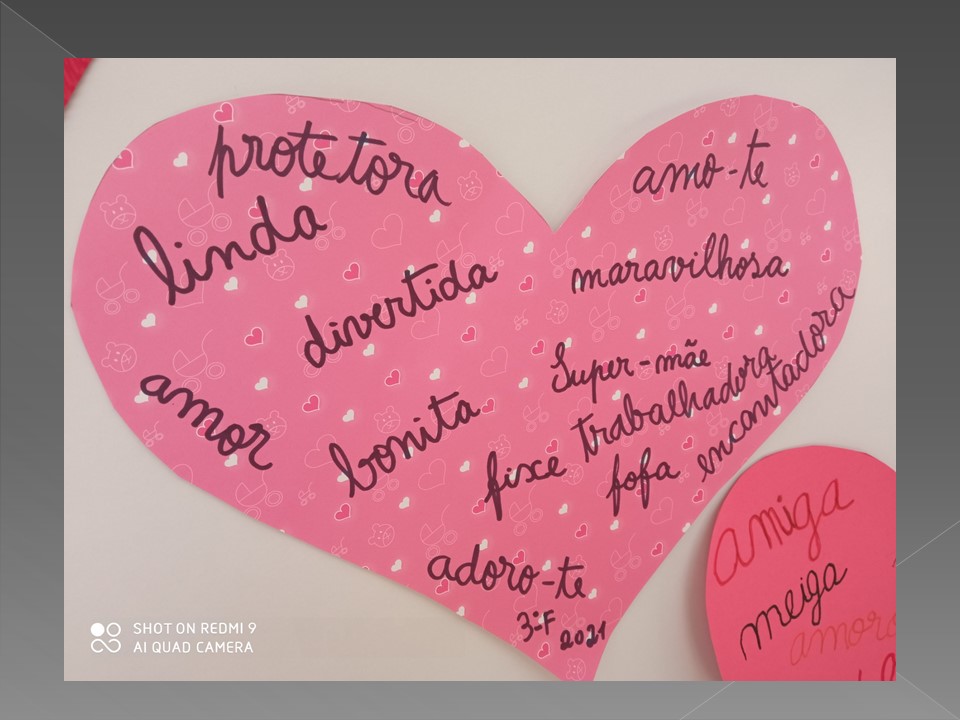 protetora
linda
divertida
amor
bonita
amo-te
maravilhosa
Super-mãe
trabalhadora
encantadora
fixe
fofa
adoro-te
3ºF
2021
amiga
meiga
SHOT ON REDMI 9
AI QUAD CAMERA